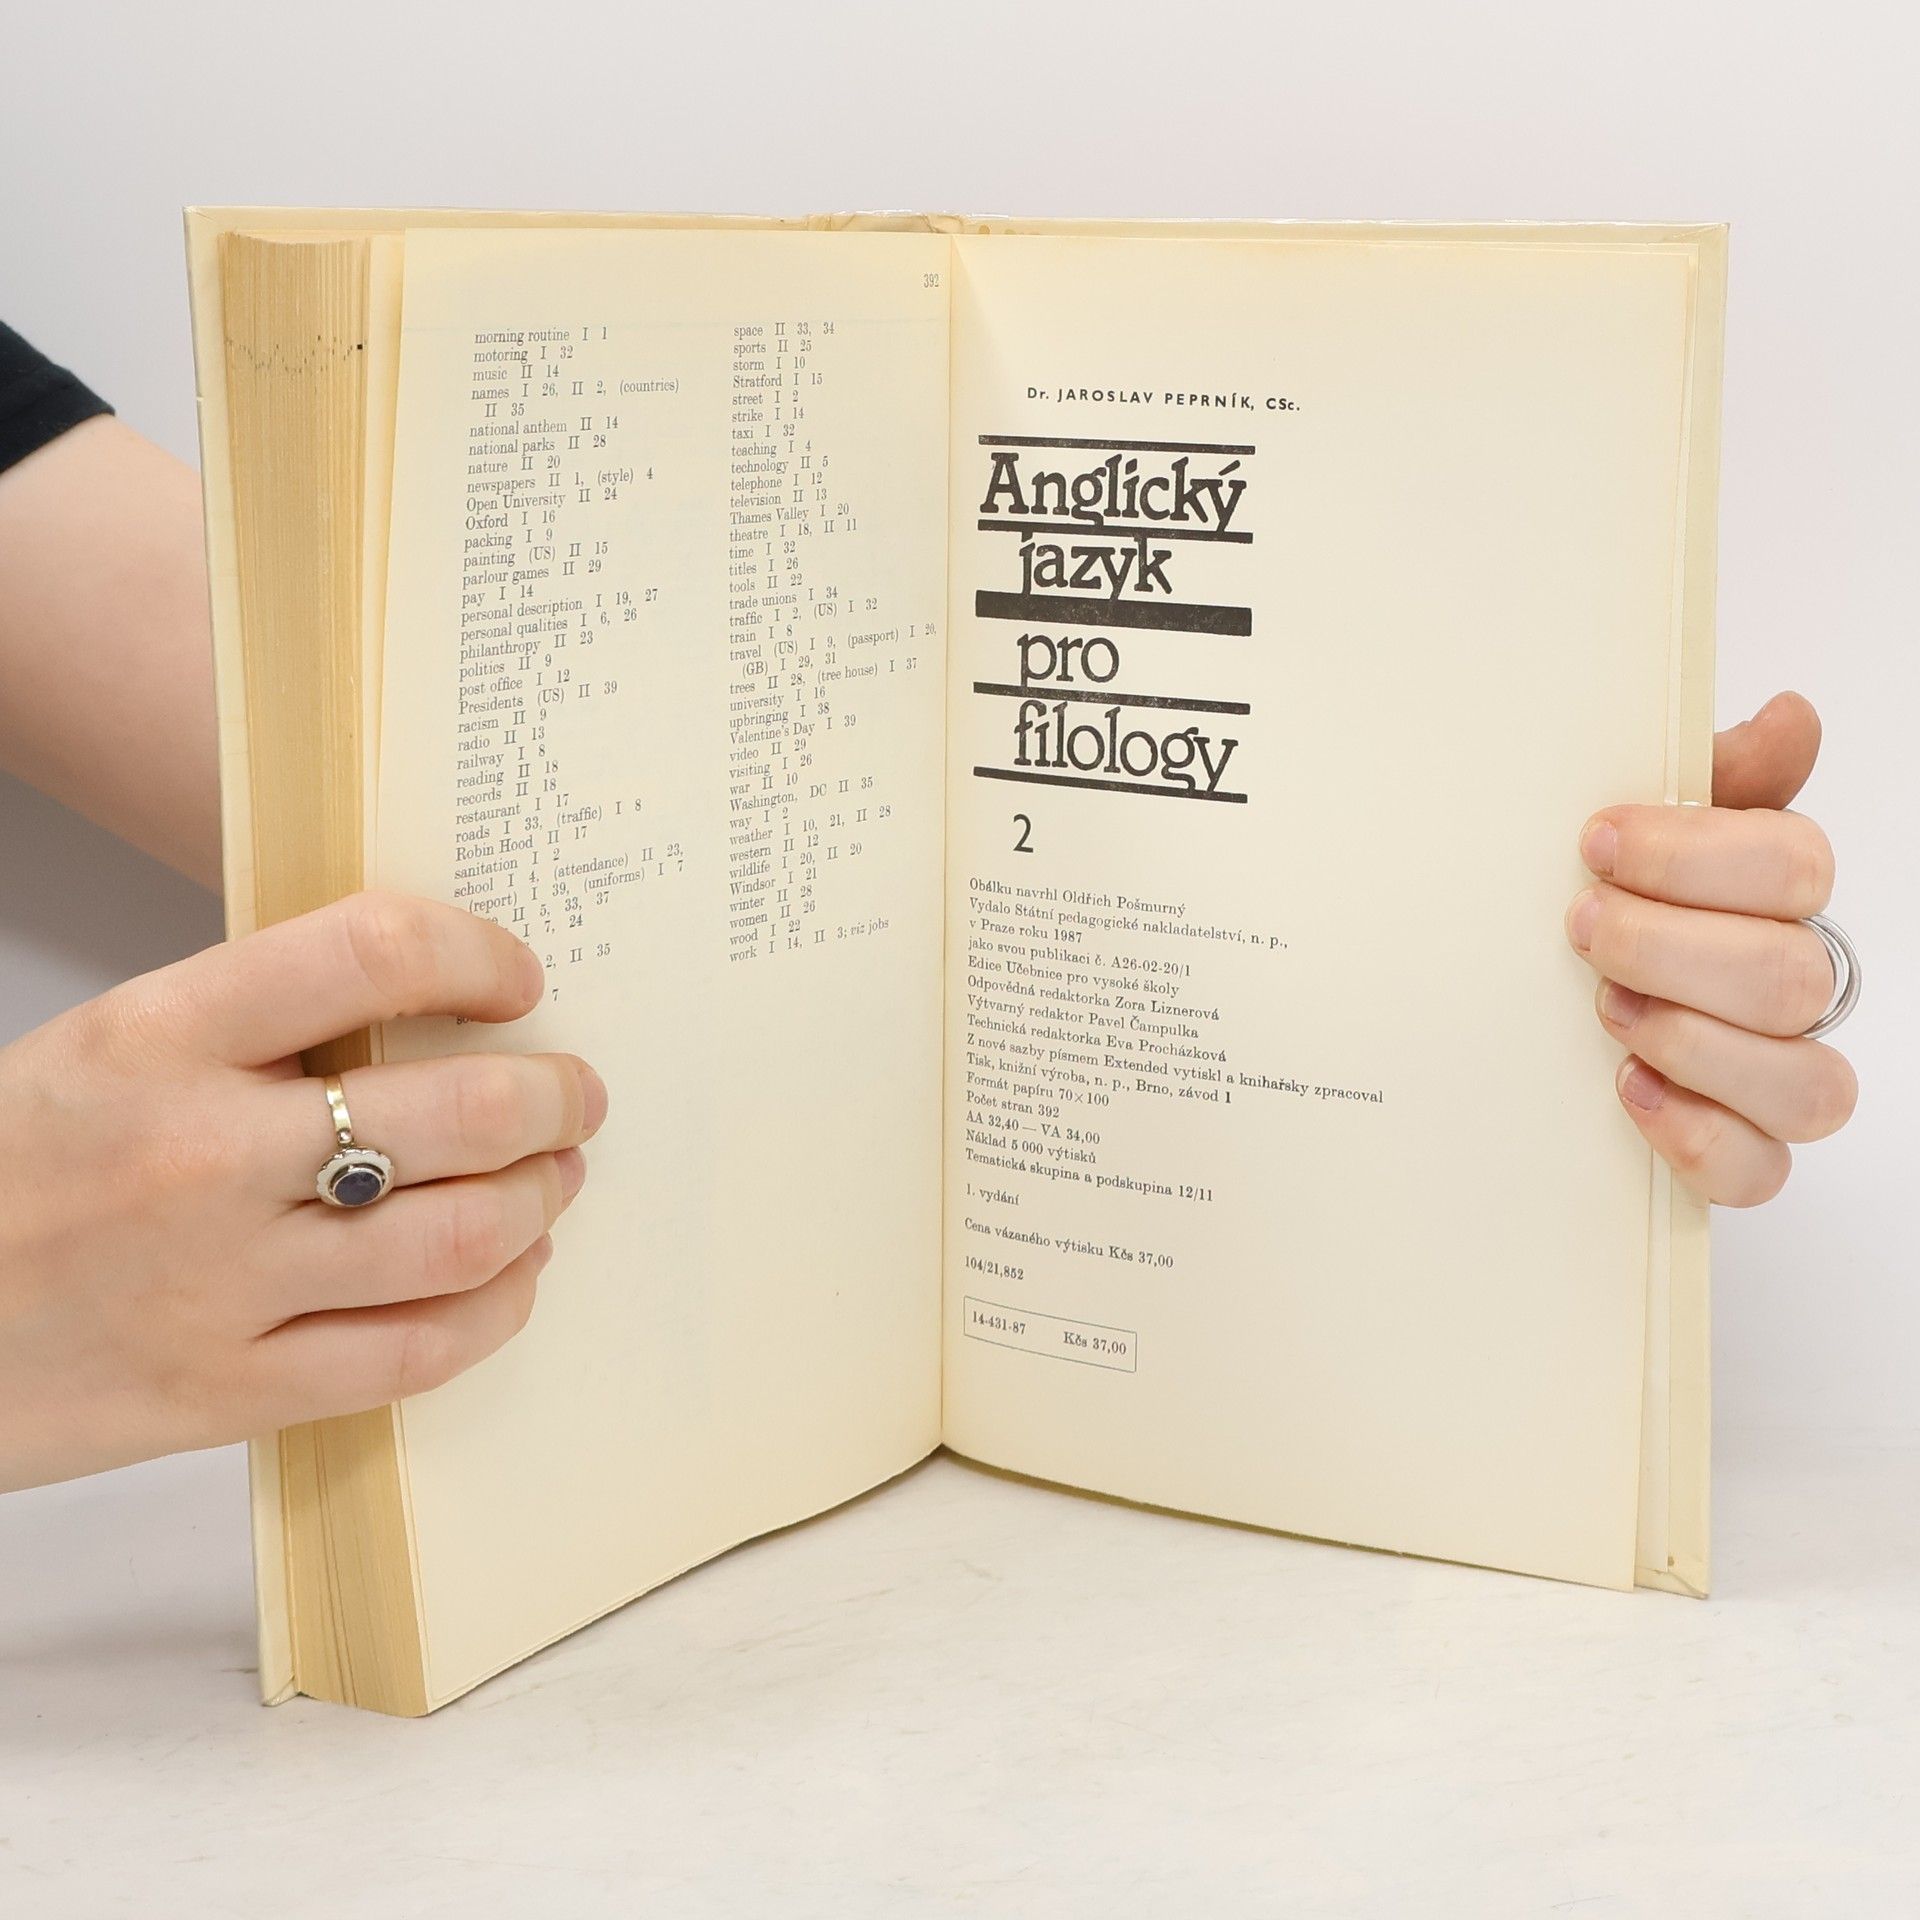 392
morning routine I 1
motoring I 32
music II 14
names I 26, II 2, (countries)
II 35
national anthem II 14
national parks II 28
nature II 20
newspapers II 1, (style) 4
Open University II 24
Oxford I 16
packing I 9
painting (US) II 15
parlour games II 29
pay I 14
personal description I 19, 27
personal qualities I 6, 26
philanthropy II 23
politics II 9
post office I 12
Presidents (US) II 39
racism II 9
radio II 13
railway I 8
reading II 18
records II 18
restaurant I 17
roads I 33, (traffic) I 8
Robin Hood II 17
sanitation I 2
school I 4, (attendance) II 23,
(report) I 39, (uniforms) I 7
II 5, 33, 37
I 7, 24
2, II 35
7
space II 33, 34
sports II 25
storm I 10
Stratford I 15
street I 2
strike I 14
taxi I 32
teaching I 4
technology II 5
telephone I 12
television II 13
Thames Valley I 20
theatre I 18, II 11
time I 32
titles I 26
tools II 22
trade unions I 34
traffic I 2, (US) I 32
train I 8
travel (US) I 9, (passport) I 20,
(GB) I 29, 31
trees II 28, (tree house) I 37
university I 16
upbringing I 38
Valentine's Day I 39
video II 29
visiting I 26
war II 10
Washington, DC II 35
way I 2
weather I 10, 21, II 28
western II 12
wildlife I 20, II 20
Windsor I 21
winter II 28
women II 26
wood I 22
work I 14, II 3; viz jobs
Dr. JAROSLAV PEPRNÍK, CSc.
Anglický
jazyk
pro
filology
2
Obálku navrhl Oldřich Pošmurný
Vydalo Státní pedagogické nakladatelství, n. p.,
v Praze roku 1987
jako svou publikaci č. A26-02-20/1
Edice Učebnice pro vysoké školy
Odpovědná redaktorka Zora Liznerová
Výtvarný redaktor Pavel Čampulka
Technická redaktorka Eva Procházková
Z nové sazby písmem Extended vytiskl a knihařsky zpracoval
Tisk, knižní výroba, n. p., Brno, závod 1
Formát papíru 70×100
Počet stran 392
AA 32,40 — VA 34,00
Náklad 5 000 výtisků
Tematická skupina a podskupina 12/11
1. vydání
Cena vázaného výtisku Kčs 37,00
104/21,852
14-431-87 Kčs 37,00